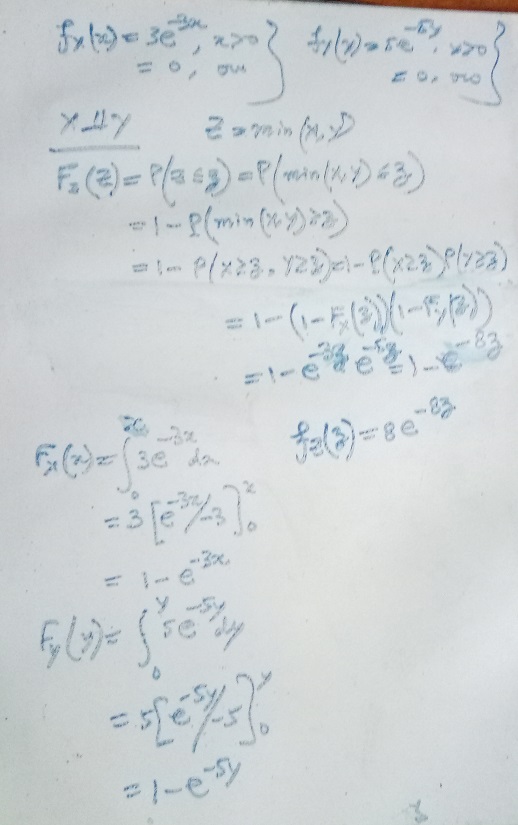 fx(x) = 3e^-3x, x>0 } fy(y) = 5e^-5y, x>0 }
= 0, ow = 0, ow
X⊥⊥Y Z = min(x,y)
Fz(z) = P(z≤z) = P(min(x,y) ≤ z)
= 1 - P(min(x,y) ≥ z)
= 1 - P(x≥z, Y≥z) = 1 - P(x≥z) P(Y≥z)
= 1 - (1-Fx(z)) (1-Fy(z))
= 1 - e^-3z e^-5z = 1 - e^-8z
fz(z) = 8e^-8z
Fx(x) = ∫_0^x 3e^-3x dx
= 3 [e^-3x/-3]_0^x
= 1 - e^-3x
Fy(y) = ∫_0^y 5e^-5y dy
= 5 [e^-5y/-5]_0^y
= 1 - e^-5y